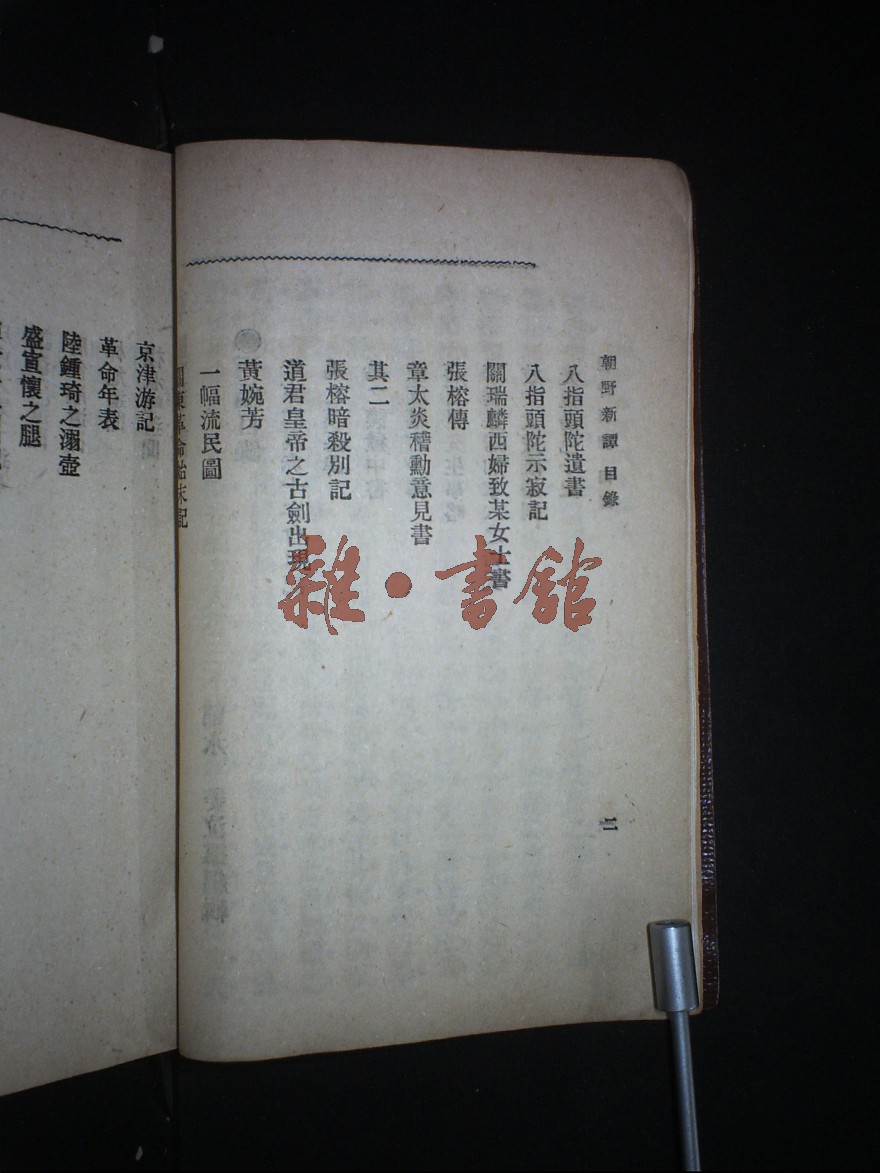 朝野新譚 目錄
二
八指頭陀遺書
八指頭陀示寂記
關瑞麟西婦致某女士書
張榕傳
章太炎稽勳意見書
其二
張榕暗殺別記
道君皇帝之古劍出現
黃婉芳
一幅流民圖
關東革命始末記
京津游記
革命年表
陸鍾琦之溺壺
盛宣懷之腿
雜·書館